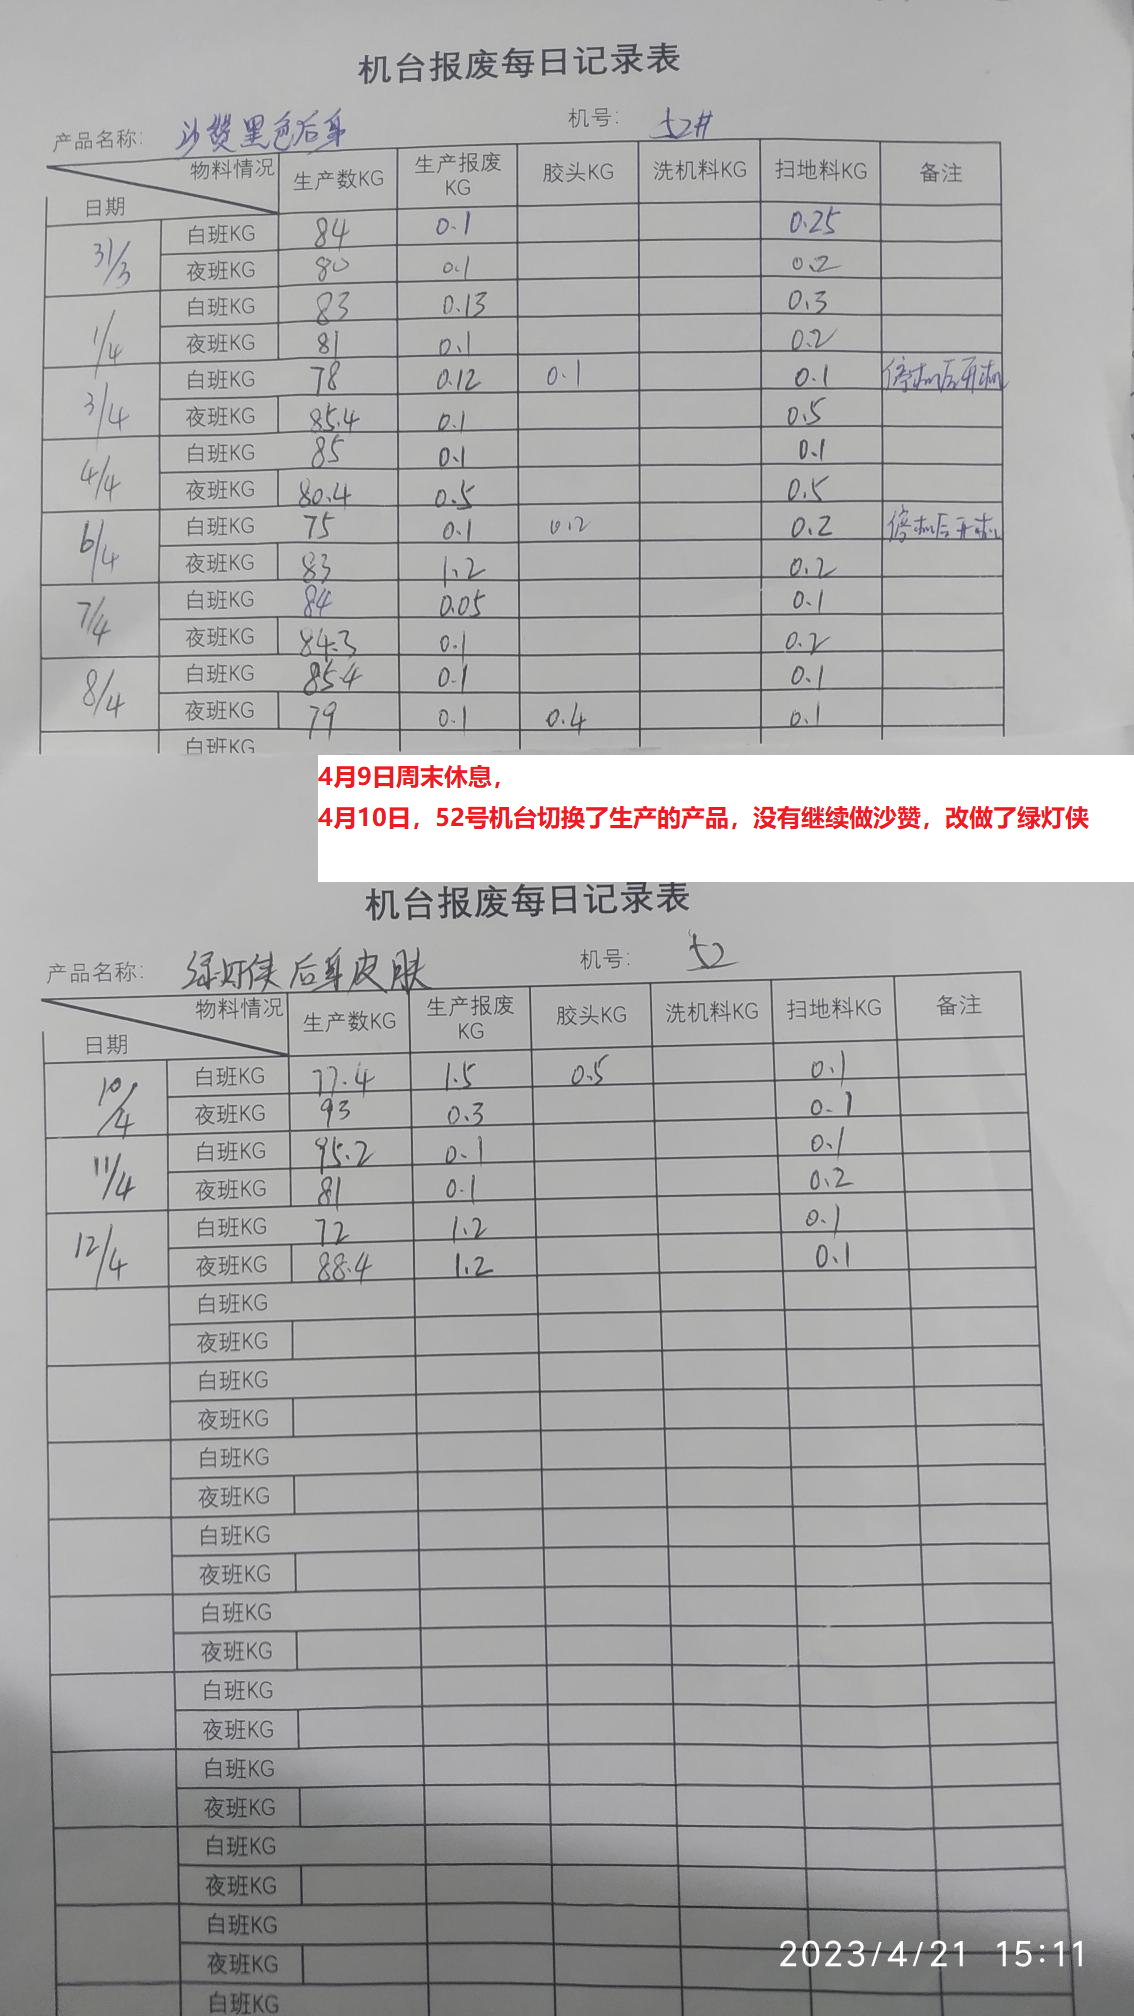 机台报废每日记录表
产品名称: 沙赞黑色后身 机号: 52#
物料情况 日期 生产数KG 生产报废KG 胶头KG 洗机料KG 扫地料KG 备注
31/3 白班KG 84 0.1 0.25
夜班KG 80 0.1 0.2
1/4 白班KG 83 0.13 0.3
夜班KG 81 0.1 0.2
3/4 白班KG 78 0.12 0.1 0.1 停机后开机
夜班KG 85.4 0.1 0.5
4/4 白班KG 85 0.1 0.1
夜班KG 80.4 0.5 0.5
6/4 白班KG 75 0.1 0.2 0.2 停机后开机
夜班KG 83 1.2 0.2
7/4 白班KG 84 0.05 0.1
夜班KG 84.3 0.1 0.2
8/4 白班KG 85.4 0.1 0.1
夜班KG 79 0.1 0.4 0.1
白班KG
4月9日周末休息，
4月10日，52号机台切换了生产的产品，没有继续做沙赞，改做了绿灯侠
机台报废每日记录表
产品名称: 绿灯侠后身皮肤 机号: 52
物料情况 日期 生产数KG 生产报废KG 胶头KG 洗机料KG 扫地料KG 备注
10/4 白班KG 77.4 1.5 0.5 0.1
夜班KG 93 0.3 0.1
11/4 白班KG 95.2 0.1 0.1
夜班KG 81 0.1 0.2
12/4 白班KG 72 1.2 0.1
夜班KG 88.4 1.2 0.1
白班KG
夜班KG
白班KG
夜班KG
白班KG
夜班KG
白班KG
夜班KG
白班KG
夜班KG
白班KG
夜班KG
白班KG
夜班KG
白班KG
夜班KG
白班KG
夜班KG
白班KG
2023/4/21 15:11